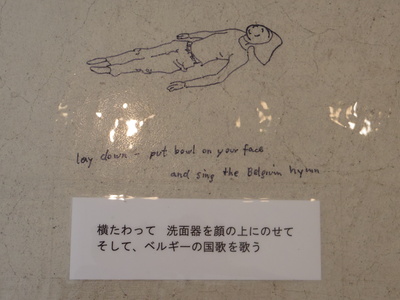 lay down - put bowl on your face
and sing the Belgium hymn
横たわって 洗面器を顔の上にのせて
そして、ベルギーの国歌を歌う